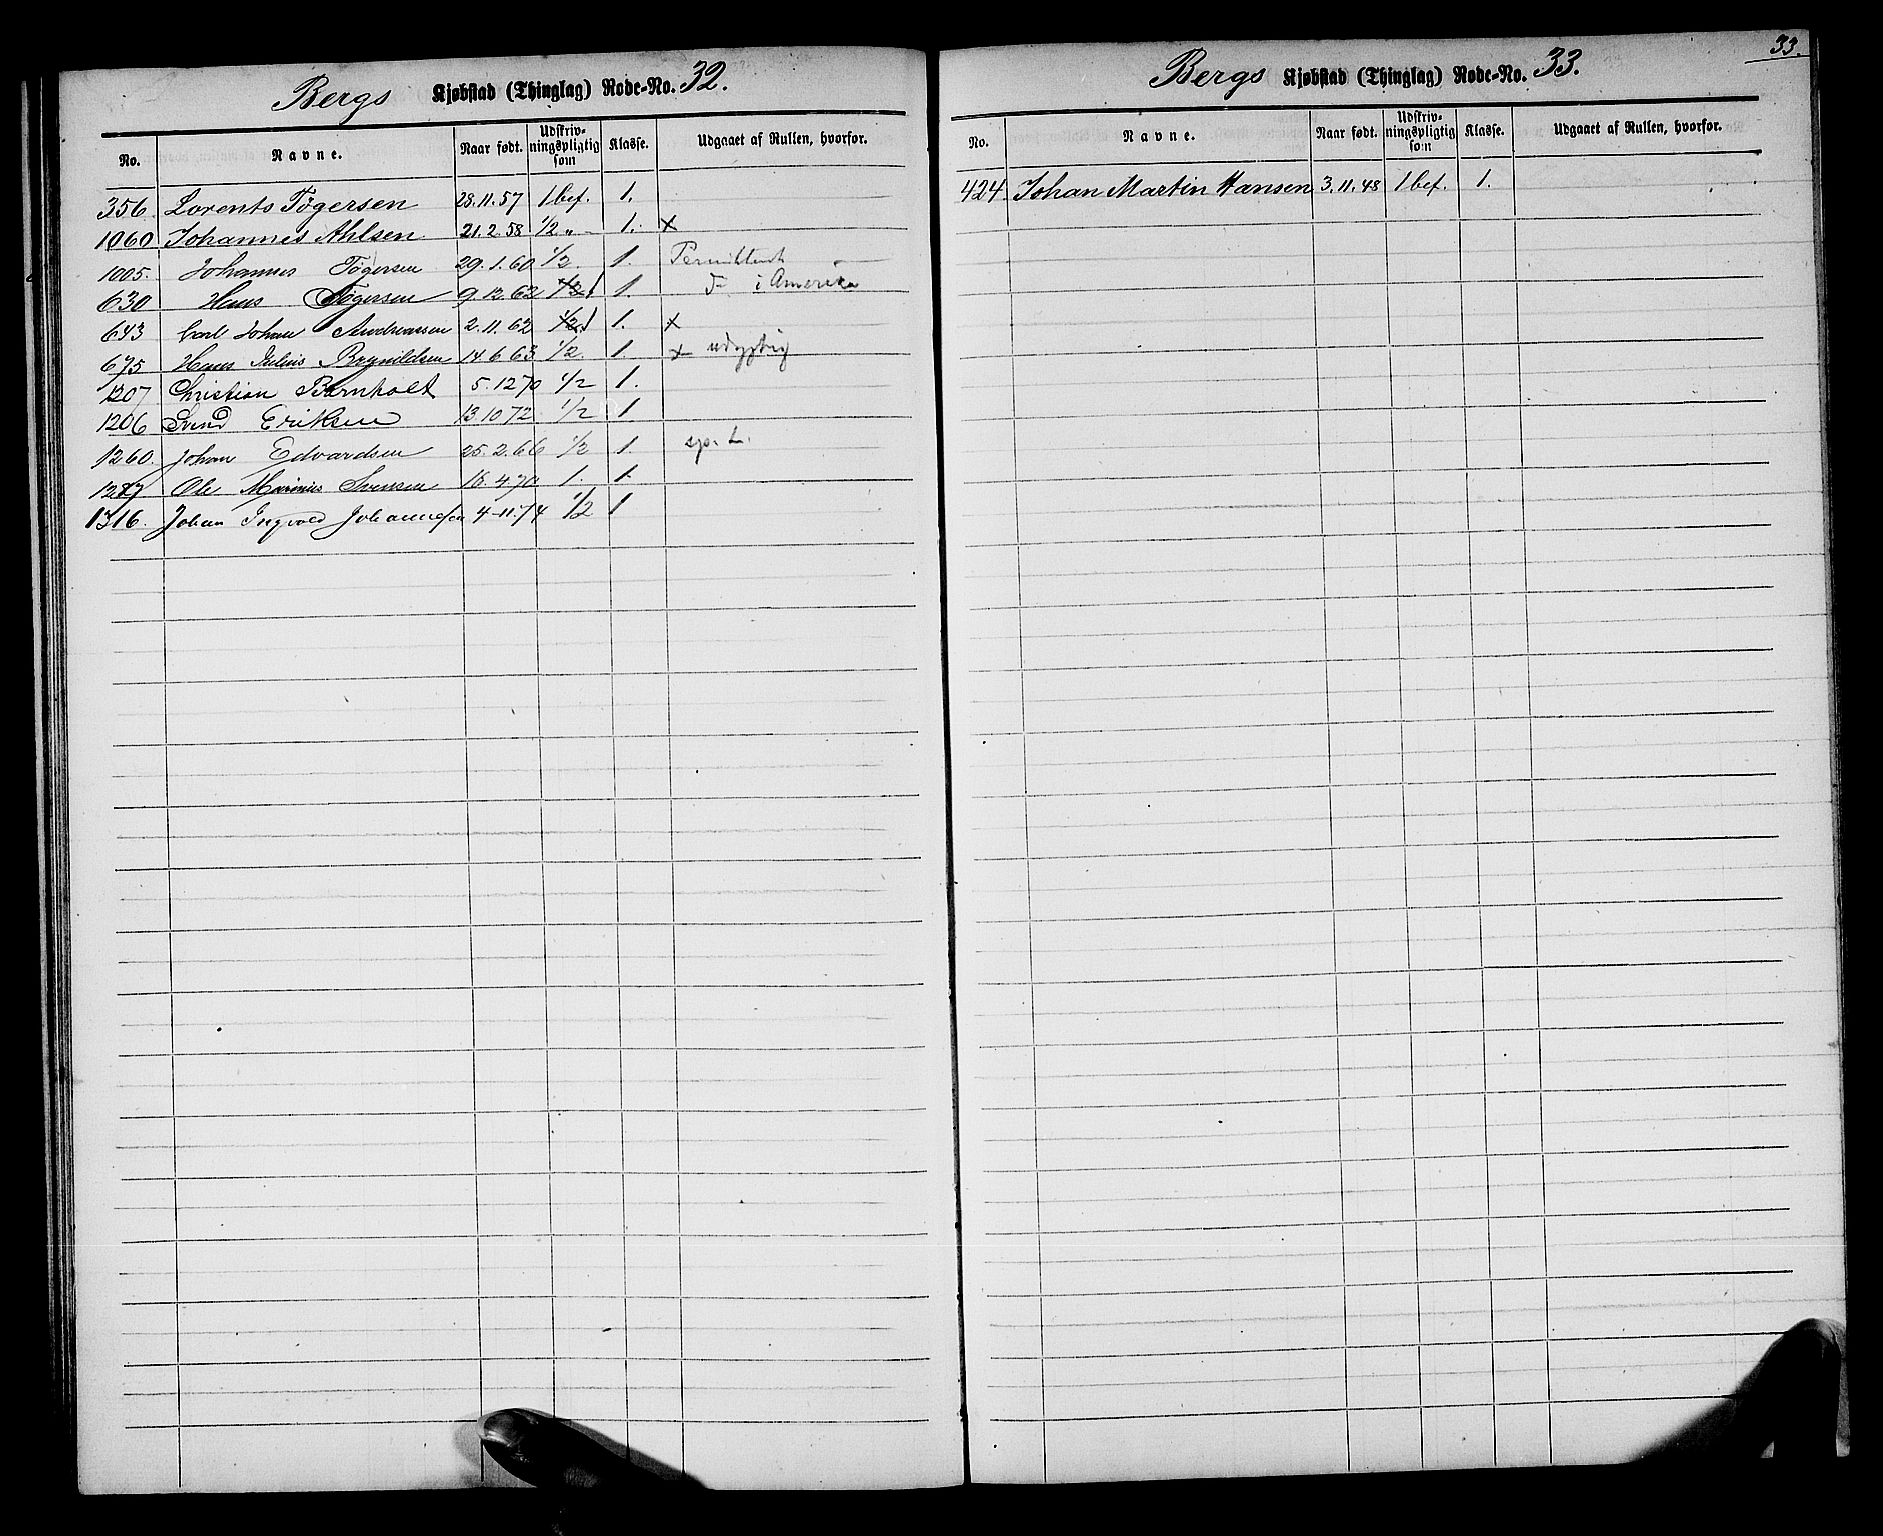 Bergs Kjøbstad (Thinglag) Rode-No. 32.
No. Navne. Naar født. Udskriv-ningspligtig som Klasse. Udgaaet af Rullen, hvorfor.
356. Lorents Tøgersen 28.11.57 1 bef. 1.
1060 Johannes Ahlsen 21.2.58 1/2 „ 1. x
1005. Johannes Tøgersen 29.1.60 1/2 1.
630 Hans Tøgersen 9.12.62 1/2 1. i Amerika
643 Carl Johan Andreassen 2.11.62 1/2 1. x
675 Hans Julius Brynildsen 14.6.63 1/2 1. x udygtig
1207 Christian Bernholt 5.12 70 1/2 1.
1206 Svend Eriksen 13.10 72 1/2 1
1260. Johan Edvardsen 25.2.66 1/2 1. sp. L.
1287 Ole Marinius Svensen 16.4.70 1. 1.
1316. Johan Ingvald Johannesen 4-11.74 1/2 1
33.
Bergs Kjøbstad (Thinglag) Rode-No. 33.
No. Navne. Naar født. Udskriv-ningspligtig som Klasse. Udgaaet af Rullen, hvorfor.
424 Johan Martin Hansen 3.11.48 1 bef. 1.